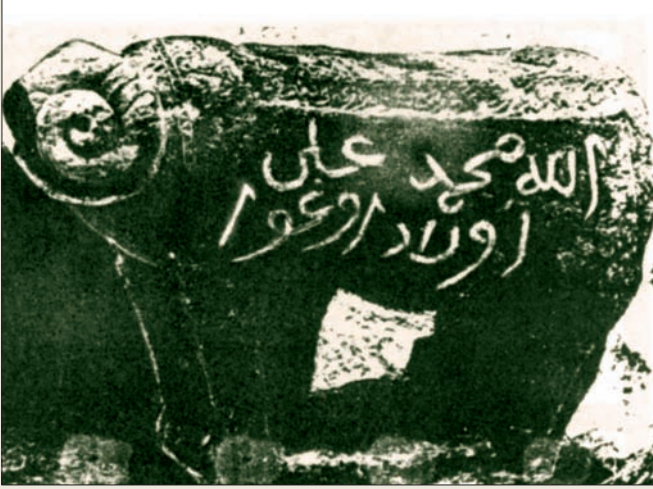 الله محمد علی
اولاد اوغور